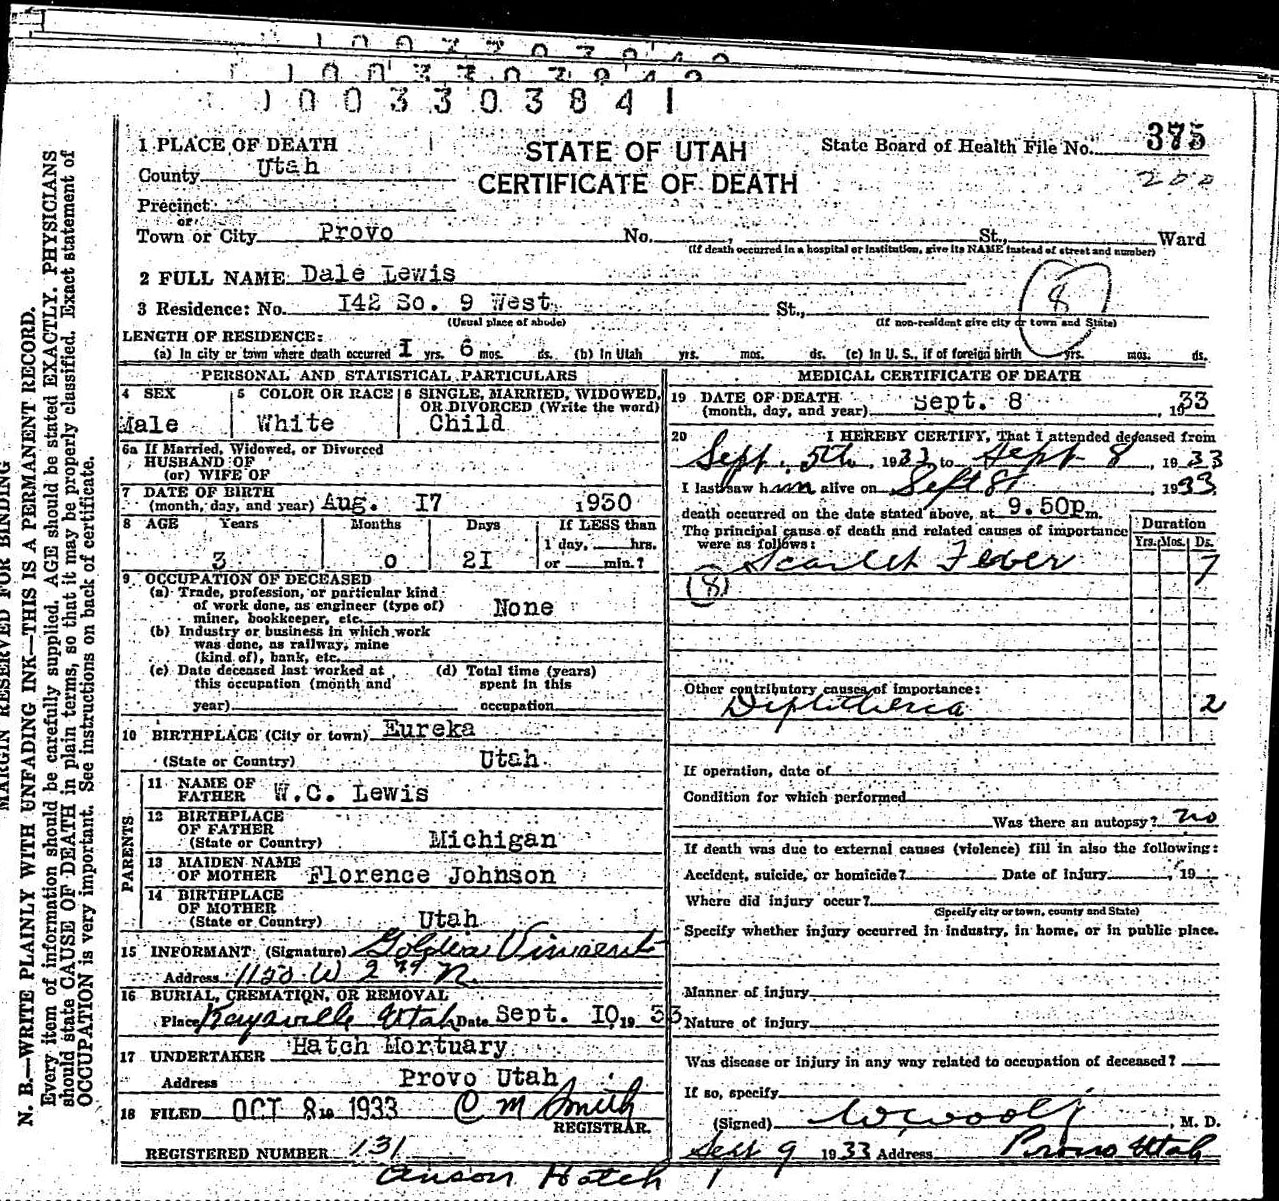 1003303841
1 PLACE OF DEATH
STATE OF UTAH
CERTIFICATE OF DEATH
State Board of Health File No. 375
200
County Utah
Precinct
or
Town or City Provo No. , St., Ward
(If death occurred in a hospital or institution, give its NAME instead of street and number)
2 FULL NAME Dale Lewis
3 Residence: No. I42 So. 9 West St.,
(Usual place of abode) (If non-resident give city or town and State)
8
LENGTH OF RESIDENCE:
(a) In city or town where death occurred I yrs. 6 mos. ds. (b) In Utah yrs. mos. ds. (c) In U. S., if of foreign birth yrs. mos. ds.
PERSONAL AND STATISTICAL PARTICULARS
4 SEX
Male
5 COLOR OR RACE
White
6 SINGLE, MARRIED, WIDOWED, OR DIVORCED (Write the word)
Child
6a If Married, Widowed, or Divorced
HUSBAND OF
(or) WIFE OF
7 DATE OF BIRTH
(month, day, and year) Aug. I7 , 1930
8 AGE Years Months Days If LESS than
1 day, hrs.
3 0 2I or min.?
9 OCCUPATION OF DECEASED
(a) Trade, profession, or particular kind
of work done, as engineer (type of)
miner, bookkeeper, etc. None
(b) Industry or business in which work
was done, as railway, mine
(kind of), bank, etc.
(c) Date deceased last worked at
this occupation (month and
year)
(d) Total time (years)
spent in this
occupation
10 BIRTHPLACE (City or town) Eureka
(State or Country) Utah
PARENTS
11 NAME OF
FATHER W.C. Lewis
12 BIRTHPLACE
OF FATHER
(State or Country) Michigan
13 MAIDEN NAME
OF MOTHER Florence Johnson
14 BIRTHPLACE
OF MOTHER
(State or Country) Utah
15 INFORMANT (Signature) Golden Vincent
Address 1120 W 2nd N.
16 BURIAL, CREMATION, OR REMOVAL
Place Kaysville Utah Date Sept. IO, 19 33
17 UNDERTAKER Hatch Mortuary
Address Provo Utah
18 FILED OCT 8 19 1933 C M Smith
REGISTRAR.
REGISTERED NUMBER 131
Anson Hatch
MEDICAL CERTIFICATE OF DEATH
19 DATE OF DEATH
(month, day, and year) Sept. 8 , 1933
20 I HEREBY CERTIFY, That I attended deceased from
Sept. 5th, 1933 to Sept 8, 1933
I last saw him alive on Sept 8, 1933
death occurred on the date stated above, at 9.50p m.
The principal cause of death and related causes of importance
were as follows:
Duration
Yrs. Mos. Ds.
Scarlet Fever 7
(8)
Other contributory causes of importance:
Diptheria 2
If operation, date of
Condition for which performed
Was there an autopsy? no
If death was due to external causes (violence) fill in also the following:
Accident, suicide, or homicide? Date of injury , 19
Where did injury occur?
(Specify city or town, county and State)
Specify whether injury occurred in industry, in home, or in public place.
Manner of injury
Nature of injury
Was disease or injury in any way related to occupation of deceased?
If so, specify
(Signed) W Woolf, M. D.
Sept 9 1933 Address Provo Utah
MARGIN RESERVED FOR BINDING
N. B.—WRITE PLAINLY WITH UNFADING INK—THIS IS A PERMANENT RECORD.
Every item of information should be carefully supplied. AGE should be stated EXACTLY. PHYSICIANS
should state CAUSE OF DEATH in plain terms, so that it may be properly classified. Exact statement of
OCCUPATION is very important. See instructions on back of certificate.